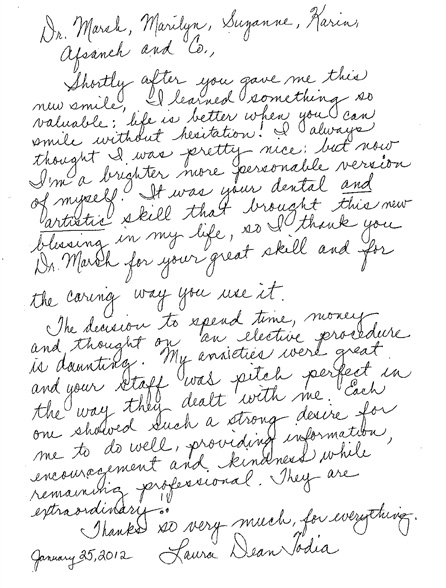 Dr. Marsh, Marilyn, Suzanne, Karin,
Afsaneh and Co.,
Shortly after you gave me this
new smile, I learned something so
valuable: life is better when you can
smile without hesitation! I always
thought I was pretty nice: but now
I'm a brighter more personable version
of myself. It was your dental and
artistic skill that brought this new
blessing in my life, so I thank you
Dr. Marsh for your great skill and for
the caring way you use it.
The decision to spend time, money
and thought on an elective procedure
is daunting. My anxieties were great
and your staff was pitch perfect in
the way they dealt with me. Each
one showed such a strong desire for
me to do well, providing information,
encouragement and kindness while
remaining professional. They are
extraordinary!!
Thanks so very much, for everything.
January 25, 2012 Laura Dean Todia